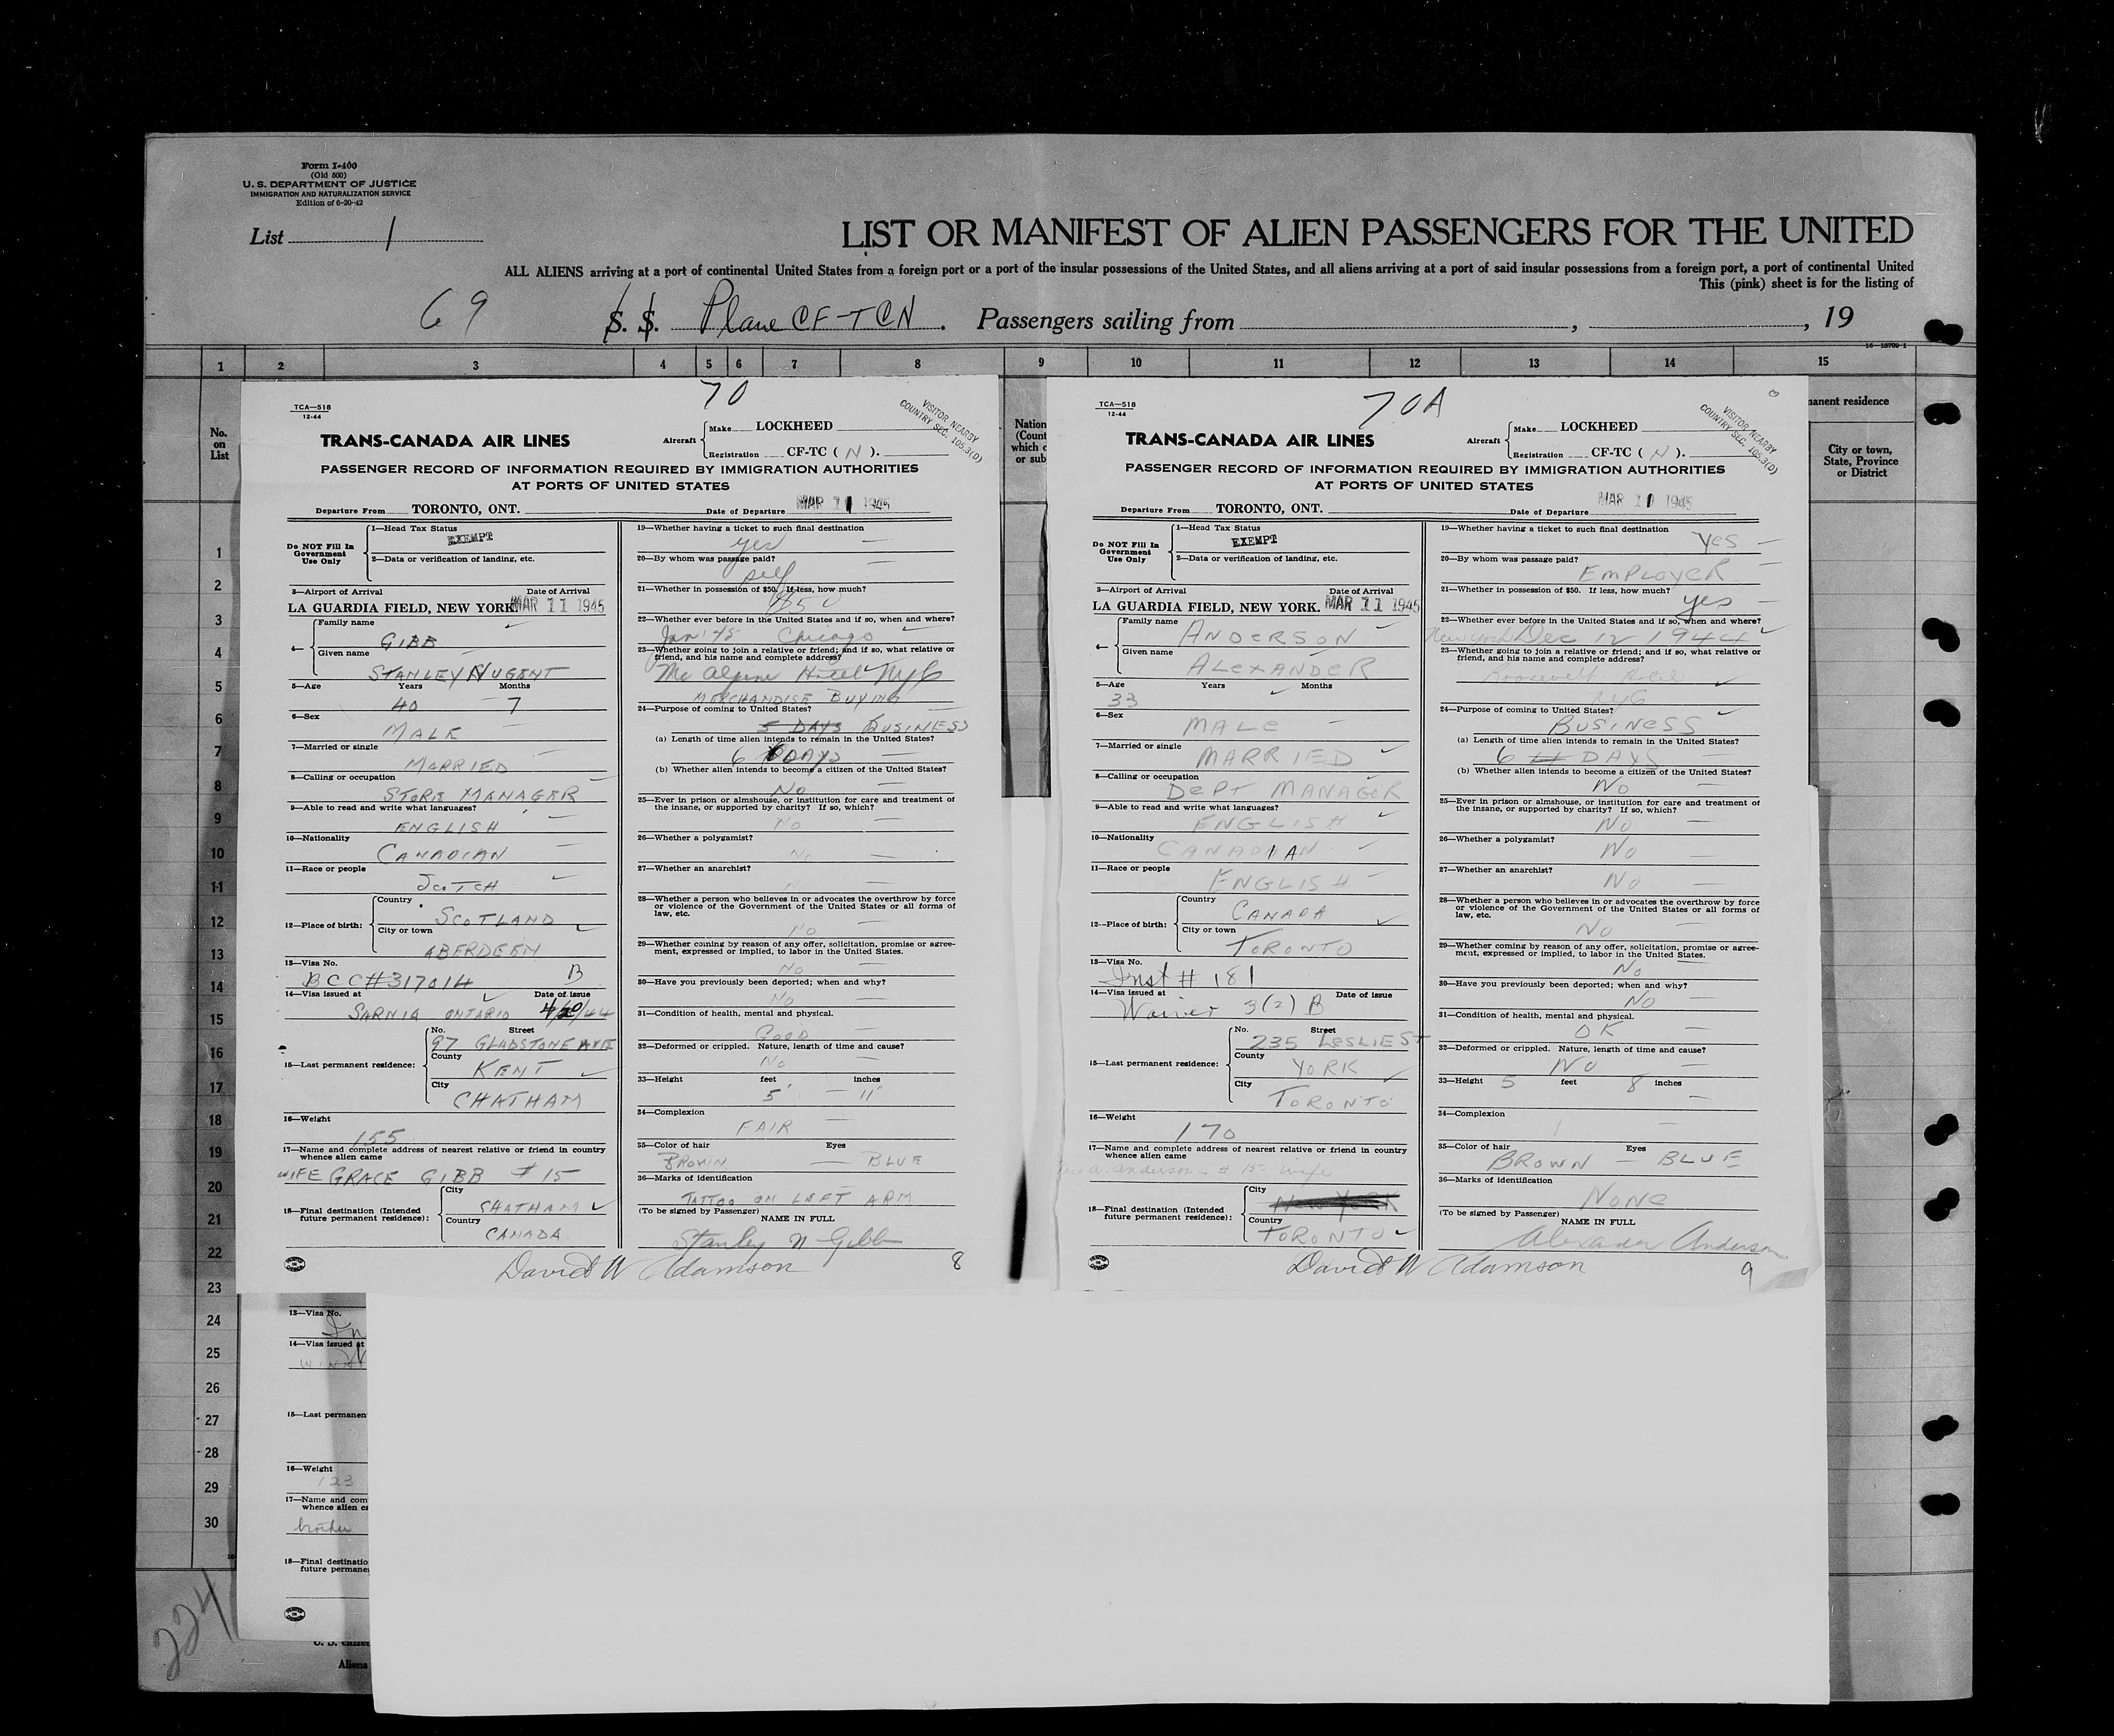 Form I-400
(Old 500)
U. S. DEPARTMENT OF JUSTICE
IMMIGRATION AND NATURALIZATION SERVICE
Edition of 6-20-42
List 1
LIST OR MANIFEST OF ALIEN PASSENGERS FOR THE UNITED
ALL ALIENS arriving at a port of continental United States from a foreign port or a port of the insular possessions of the United States, and all aliens arriving at a port of said insular possessions from a foreign port, a port of continental United
This (pink) sheet is for the listing of
69 S. S. Plane CF-TCN. Passengers sailing from , , 19
1 2 3 4 5 6 7 8 9 10 11 12 13 14 15
No. on List
1
2
3
4
5
6
7
8
9
10
11
12
13
14
15
16
17
18
19
20
21
22
23
24
25
26
27
28
29
30
224
70
TCA—518
12-44
VISITOR, NEARBY
COUNTRY SEC. 105.3(D)
TRANS-CANADA AIR LINES
Aircraft Make LOCKHEED
Registration CF-TC ( N ).
PASSENGER RECORD OF INFORMATION REQUIRED BY IMMIGRATION AUTHORITIES
AT PORTS OF UNITED STATES
Departure From TORONTO, ONT. Date of Departure MAR 11 1945
Do NOT Fill In Government Use Only
1—Head Tax Status
EXEMPT
2—Data or verification of landing, etc.
3—Airport of Arrival Date of Arrival
LA GUARDIA FIELD, NEW YORK MAR 11 1945
4— Family name
GIBB
Given name
STANLEY NUGENT
5—Age Years Months
40 7
6—Sex
MALE
7—Married or single
MARRIED
8—Calling or occupation
STORE MANAGER
9—Able to read and write what languages?
ENGLISH
10—Nationality
CANADIAN
11—Race or people
SCOTCH
12—Place of birth: Country
SCOTLAND
City or town
ABERDEEN
13—Visa No.
BCC#317014 B
14—Visa issued at Date of issue
SARNIA ONTARIO 4/20/44
15—Last permanent residence: No. Street
97 GLADSTONE AVE
County
KENT
City
CHATHAM
16—Weight
155
17—Name and complete address of nearest relative or friend in country
whence alien came
WIFE GRACE GIBB #15
18—Final destination (Intended
future permanent residence):
City
CHATHAM
Country
CANADA
19—Whether having a ticket to such final destination
yes
20—By whom was passage paid?
self
21—Whether in possession of $50. If less, how much?
$50
22—Whether ever before in the United States and if so, when and where?
Jan '45 Chicago
23—Whether going to join a relative or friend; and if so, what relative or
friend, and his name and complete address?
Mc Alpin Hotel NYC
MERCHANDISE BUYING
24—Purpose of coming to United States?
5 DAYS BUSINESS
(a) Length of time alien intends to remain in the United States?
6 DAYS
(b) Whether alien intends to become a citizen of the United States?
No
25—Ever in prison or almshouse, or institution for care and treatment of
the insane, or supported by charity? If so, which?
No
26—Whether a polygamist?
No
27—Whether an anarchist?
28—Whether a person who believes in or advocates the overthrow by force
or violence of the Government of the United States or all forms of
law, etc.
No
29—Whether coming by reason of any offer, solicitation, promise or agree-
ment, expressed or implied, to labor in the United States.
No
30—Have you previously been deported; when and why?
No
31—Condition of health, mental and physical.
GOOD
32—Deformed or crippled. Nature, length of time and cause?
No
33—Height feet inches
5' 11"
34—Complexion
FAIR
35—Color of hair Eyes
BROWN — BLUE
36—Marks of identification
TATTOO ON LEFT ARM
(To be signed by Passenger)
NAME IN FULL
Stanley N Gibb
David W Adamson 8
Nation
(Count
which c
or sub
70A
TCA—518
12-44
VISITOR NEARBY
COUNTRY SEC. 105.3(D)
TRANS-CANADA AIR LINES
Aircraft Make LOCKHEED
Registration CF-TC ( N ).
PASSENGER RECORD OF INFORMATION REQUIRED BY IMMIGRATION AUTHORITIES
AT PORTS OF UNITED STATES
Departure From TORONTO, ONT. Date of Departure MAR 11 1945
Do NOT Fill In Government Use Only
1—Head Tax Status
EXEMPT
2—Data or verification of landing, etc.
3—Airport of Arrival Date of Arrival
LA GUARDIA FIELD, NEW YORK. MAR 11 1945
4— Family name
ANDERSON
Given name
ALEXANDER
5—Age Years Months
33
6—Sex
MALE
7—Married or single
MARRIED
8—Calling or occupation
DEPT MANAGER
9—Able to read and write what languages?
ENGLISH
10—Nationality
CANADIAN
11—Race or people
ENGLISH
12—Place of birth: Country
CANADA
City or town
TORONTO
13—Visa No.
Inst # 181
14—Visa issued at Date of issue
Waiver 3(2) B
15—Last permanent residence: No. Street
235 LESLIE ST
County
YORK
City
TORONTO
16—Weight
170
17—Name and complete address of nearest relative or friend in country
whence alien came
Mrs A. Anderson - # 15 - wife
18—Final destination (Intended
future permanent residence):
City
New York
Country
TORONTO
19—Whether having a ticket to such final destination
yes
20—By whom was passage paid?
EMPLOYER
21—Whether in possession of $50. If less, how much?
yes
22—Whether ever before in the United States and if so, when and where?
New York Dec 12 1944
23—Whether going to join a relative or friend; and if so, what relative or
friend, and his name and complete address?
Roosevelt Hotel
NYC
24—Purpose of coming to United States?
BUSINESS
(a) Length of time alien intends to remain in the United States?
6 DAYS
(b) Whether alien intends to become a citizen of the United States?
No
25—Ever in prison or almshouse, or institution for care and treatment of
the insane, or supported by charity? If so, which?
No
26—Whether a polygamist?
No
27—Whether an anarchist?
No
28—Whether a person who believes in or advocates the overthrow by force
or violence of the Government of the United States or all forms of
law, etc.
No
29—Whether coming by reason of any offer, solicitation, promise or agree-
ment, expressed or implied, to labor in the United States.
No
30—Have you previously been deported; when and why?
No
31—Condition of health, mental and physical.
OK
32—Deformed or crippled. Nature, length of time and cause?
No
33—Height 5 feet 8 inches
34—Complexion
35—Color of hair Eyes
BROWN — BLUE
36—Marks of identification
NONE
(To be signed by Passenger)
NAME IN FULL
Alexander Anderson
David W Adamson 9
manent residence
City or town,
State, Province
or District
13—Visa No.
In
14—Visa issued at
15—Last permanen
16—Weight
123
17—Name and com
whence alien ca
brother
18—Final destinatio
future permane
U. S. citizen
Aliens